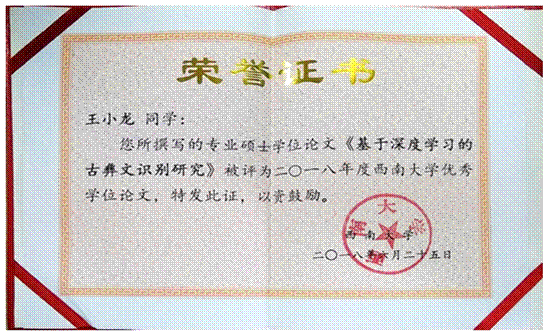 荣誉证书
王小龙 同学：
您所撰写的专业硕士学位论文《基于深度学习的
古彝文识别研究》被评为二〇一八年度西南大学优秀
学位论文，特发此证，以资鼓励。
西南大学
二〇一八年六月二十五日